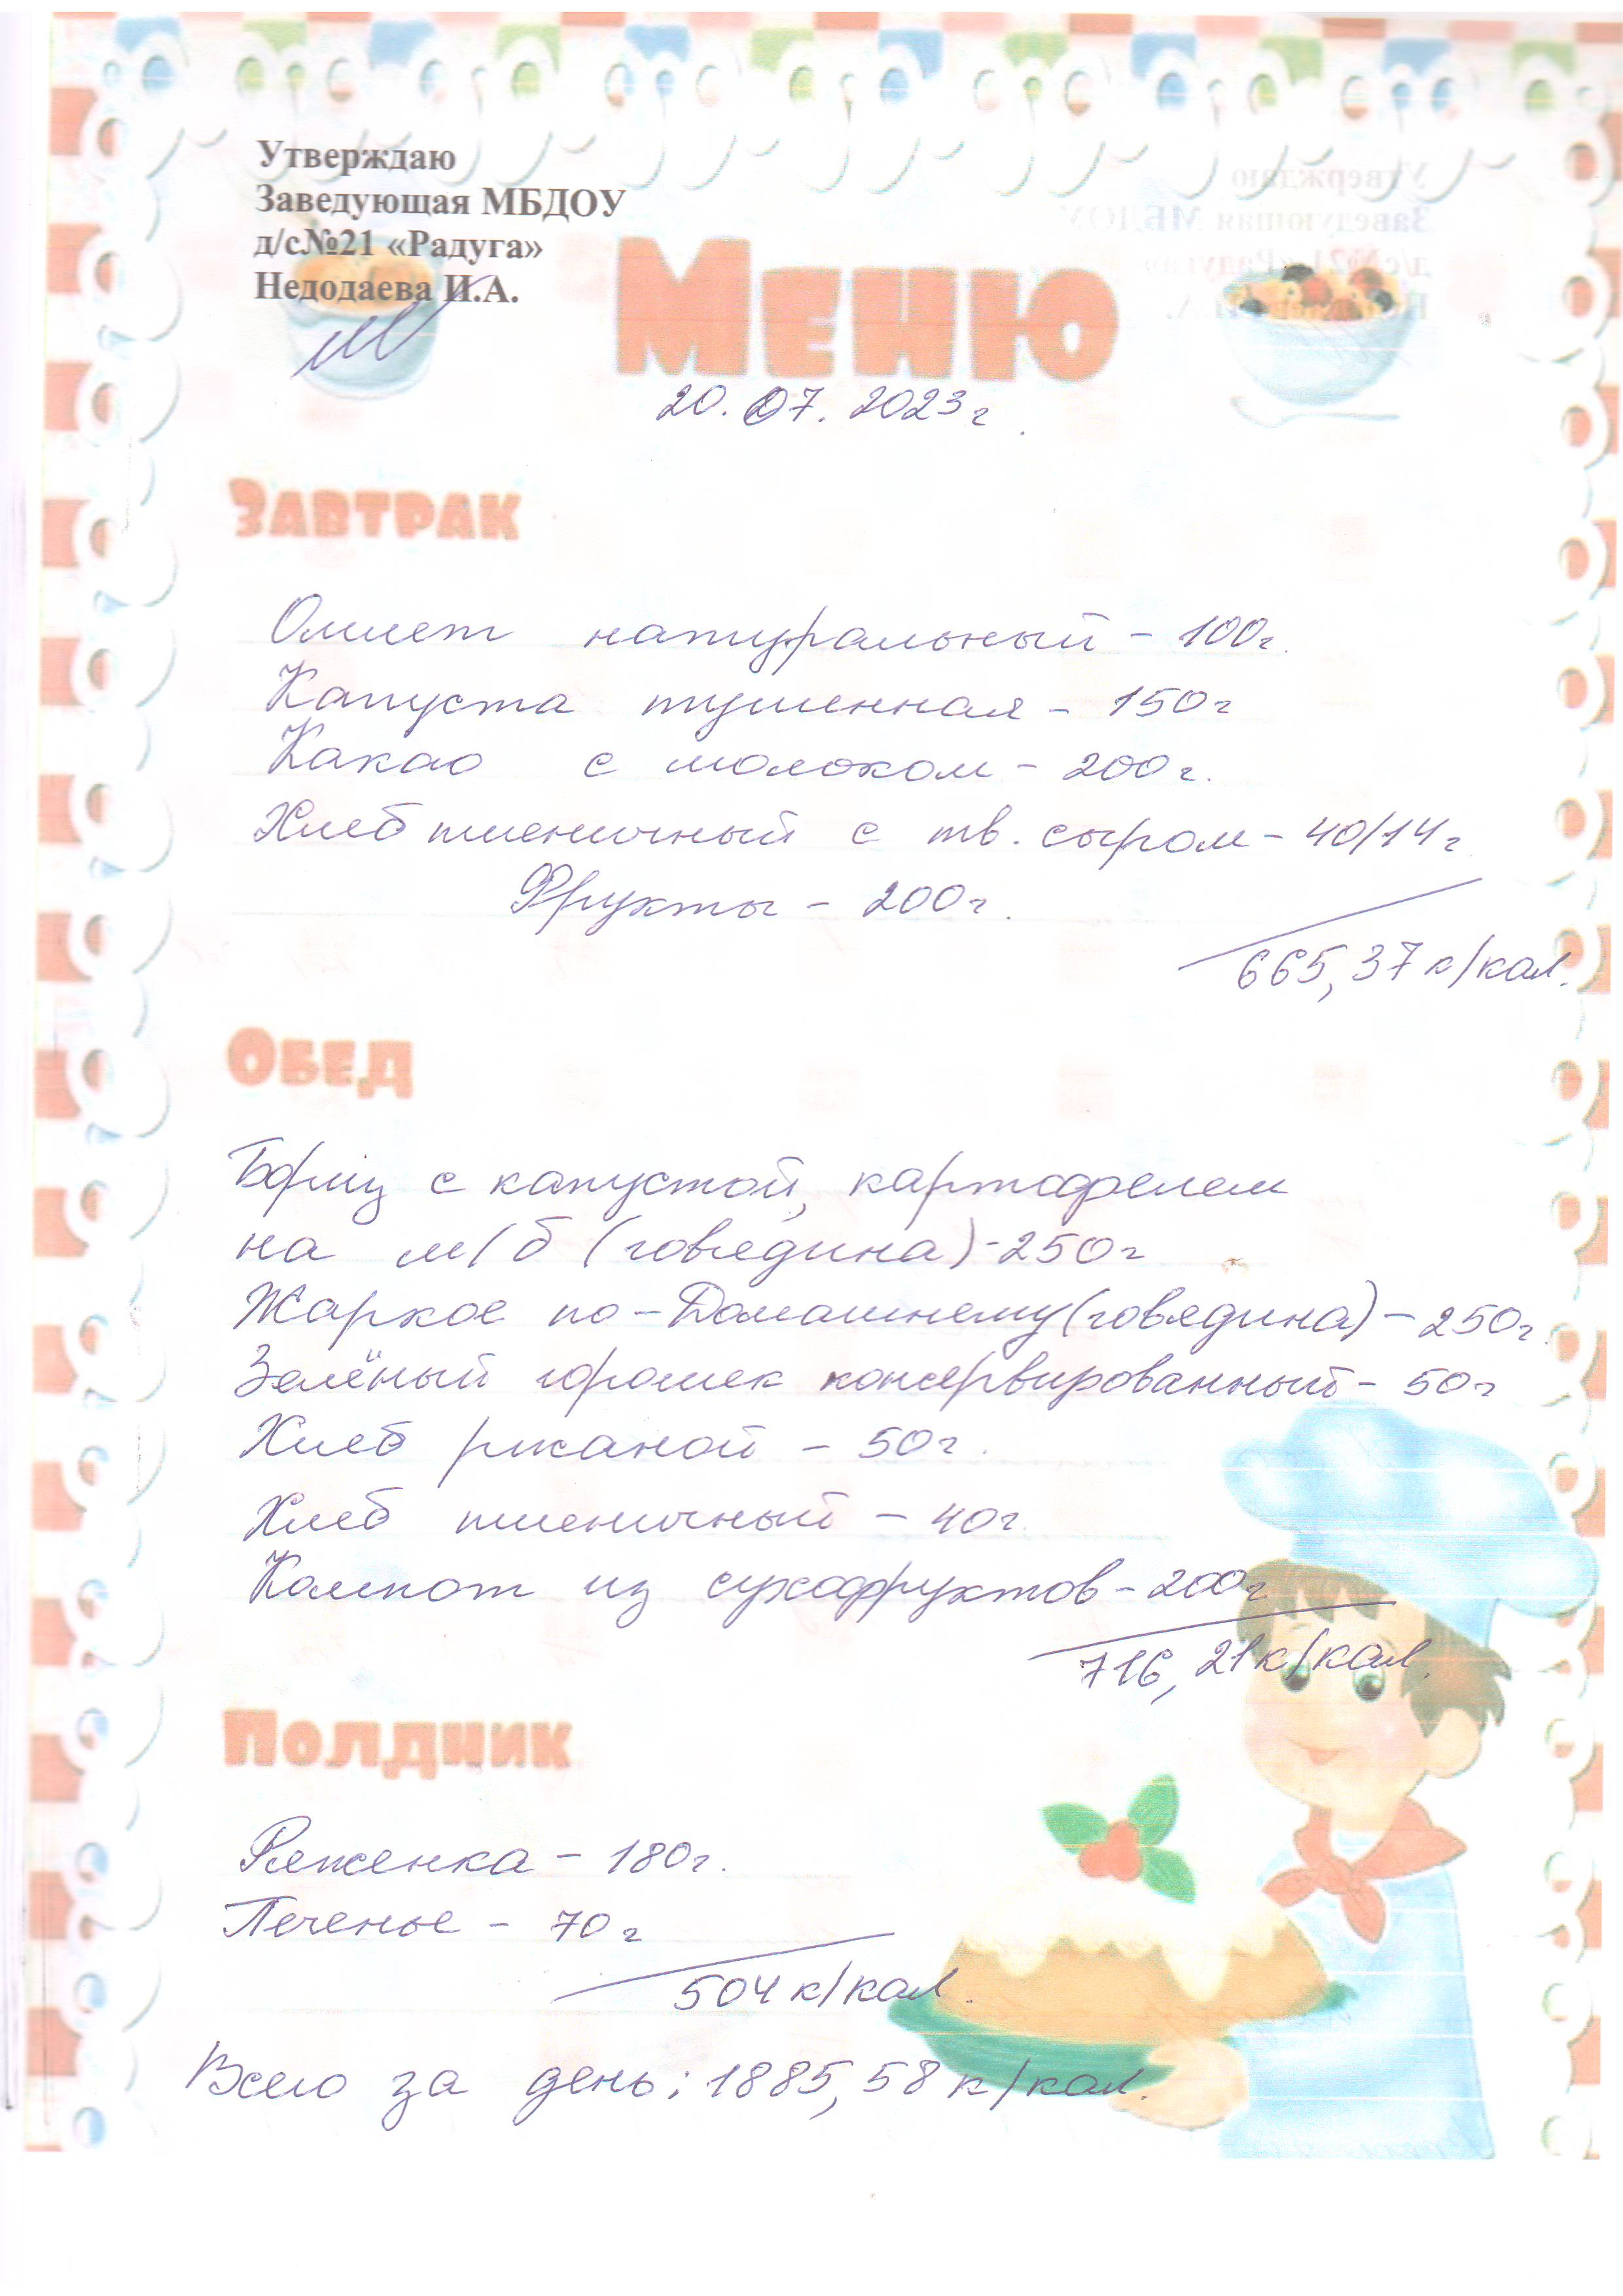 Утверждаю
Заведующая МБДОУ
д/с№21 «Радуга»
Недодаева И.А.
Меню
20.07.2023г.
Завтрак
Омлет натуральный - 100г.
Капуста тушенная - 150г
Какао с молоком - 200г.
Хлеб пшеничный с тв. сыром - 40/14г
Фрукты - 200г.
665,37 к/кал.
Обед
Борщ с капустой, картофелем
на м/б (говядина) - 250г
Жаркое по-Домашнему (говядина) - 250г.
Зелёный горошек консервированный - 50г
Хлеб ржаной - 50г.
Хлеб пшеничный - 40г.
Компот из сухофруктов - 200г
716,21 к/кал.
Полдник
Ряженка - 180г.
Печенье - 70г
504 к/кал.
Всего за день: 1885,58 к/кал.